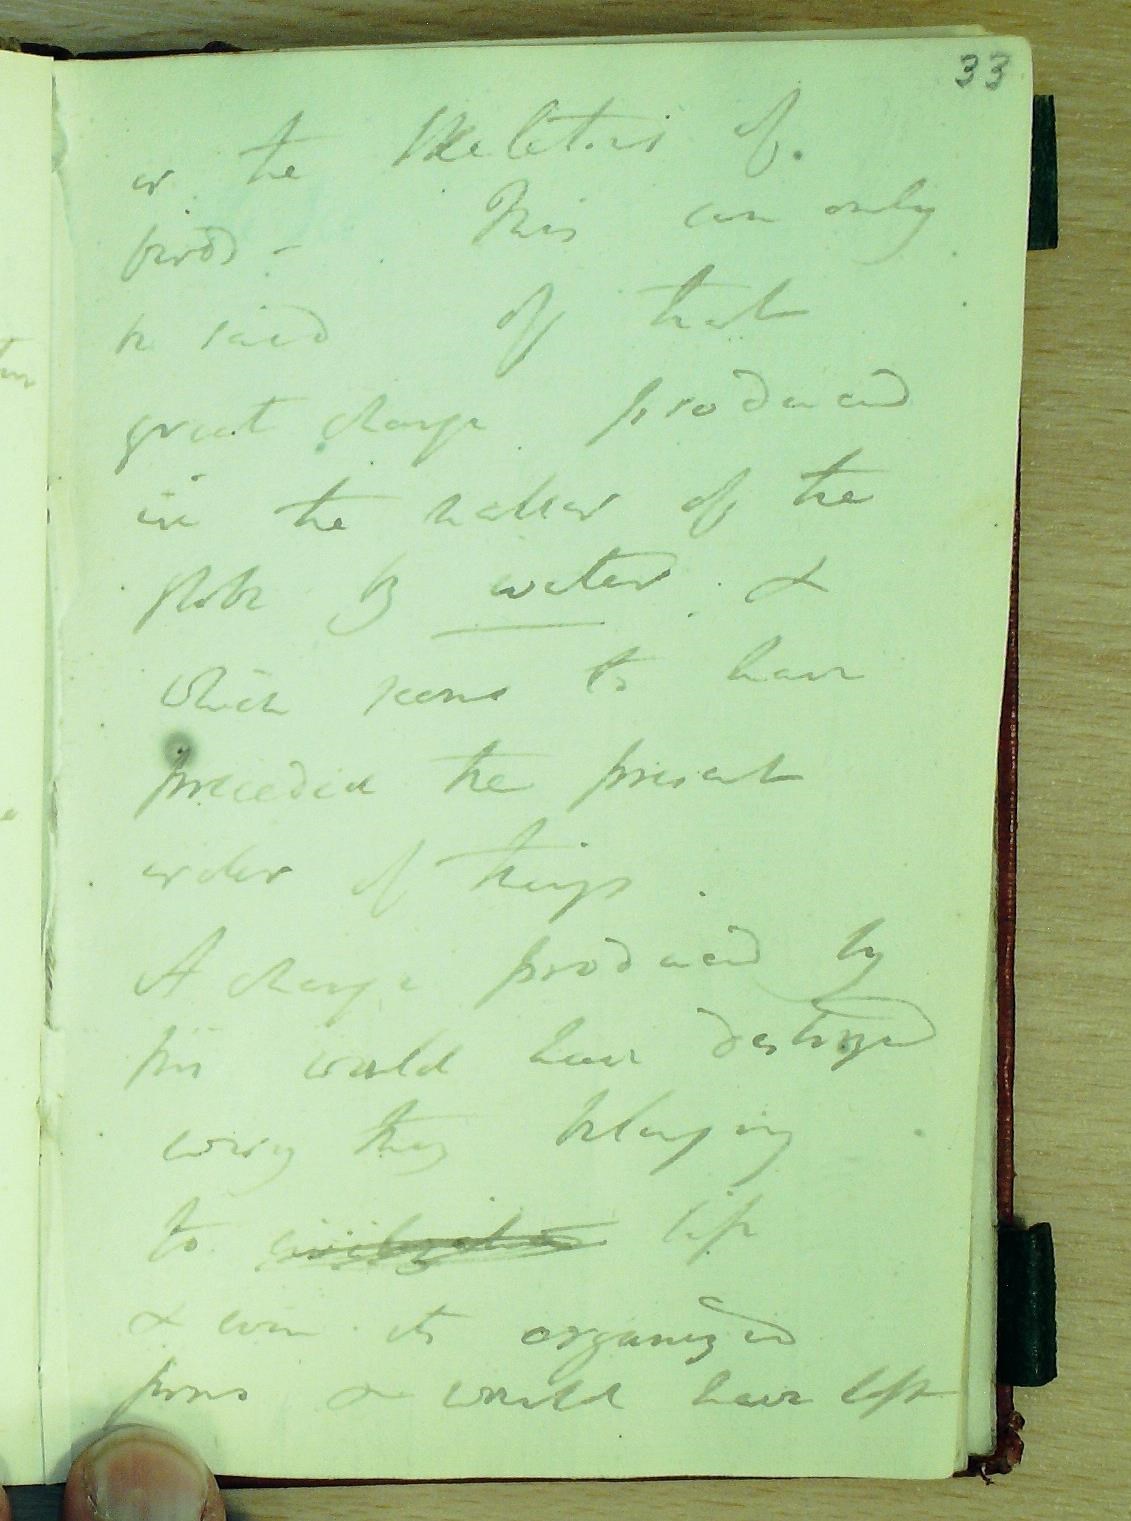 33
or the Skeletons of
birds - This can only
be said of that
great change produced
in the nature of the
globe by water. &
which seems to have
preceded the present
order of things.
A change produced by
fire would have destroyed
every thing belonging
to civilization life
& even its organized
forms & would have left